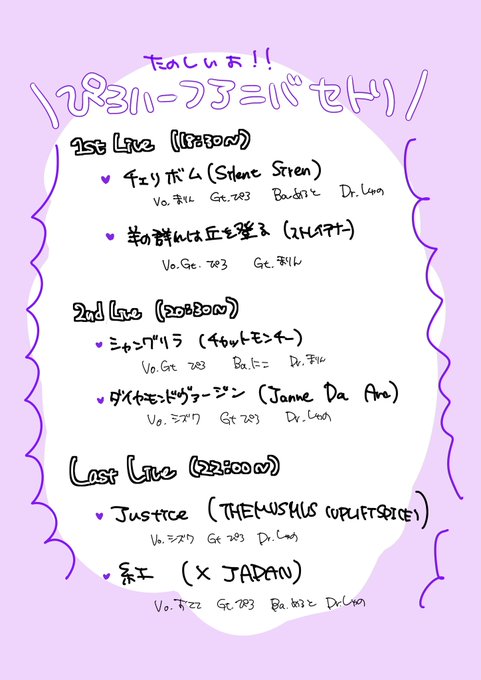 たのしいお!!
\ぴろハーフアニバ セトリ/
1st Live (18:30~)
♥ チェリボム (Silent Siren)
Vo. まりん Gt. ぴろ Ba. める と Dr. しゅの
♥ 羊の群れは丘を登る (ストレイテナー)
Vo.Gt. ぴろ Gt. まりん
2nd Live (20:30~)
♥ シャングリラ (チャットモンチー)
Vo.Gt ぴろ Ba.にこ Dr. まりん
♥ ダイヤモンドヴァージン (Janne Da Arc)
Vo. シズク Gt ぴろ Dr. しゅの
Last Live (22:00~)
♥ Justice (THE MUSMUS (UPLIFT SPICE))
Vo. シズク Gt ぴろ Dr. しゅの
♥ 紅 (X JAPAN)
Vo. Gt. ぴろ Ba. めると Dr. しゅの